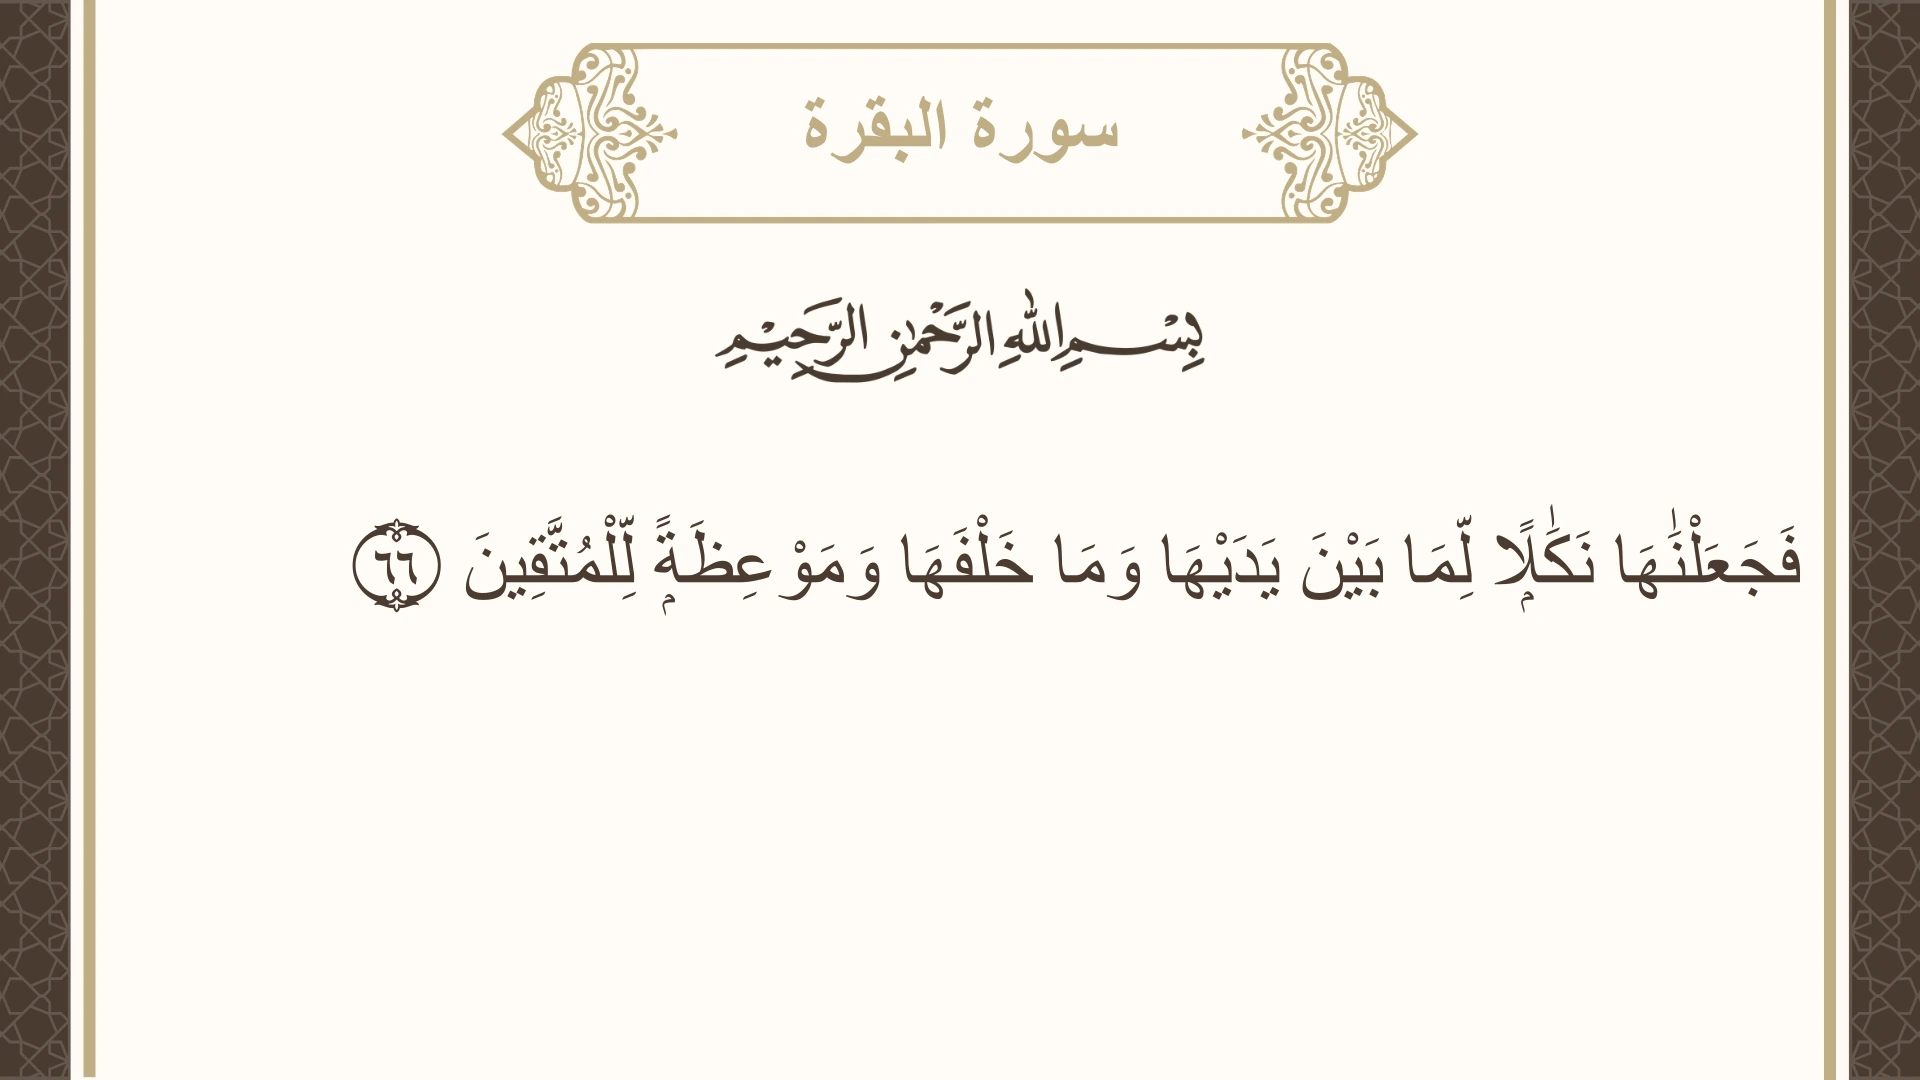 سورة البقرة
بِسْمِ اللهِ الرَّحْمٰنِ الرَّحِيْمِ
فَجَعَلْنَٰهَا نَكَٰلًۭا لِّمَا بَيْنَ يَدَيْهَا وَمَا خَلْفَهَا وَمَوْعِظَةًۭ لِّلْمُتَّقِينَ ٦٦